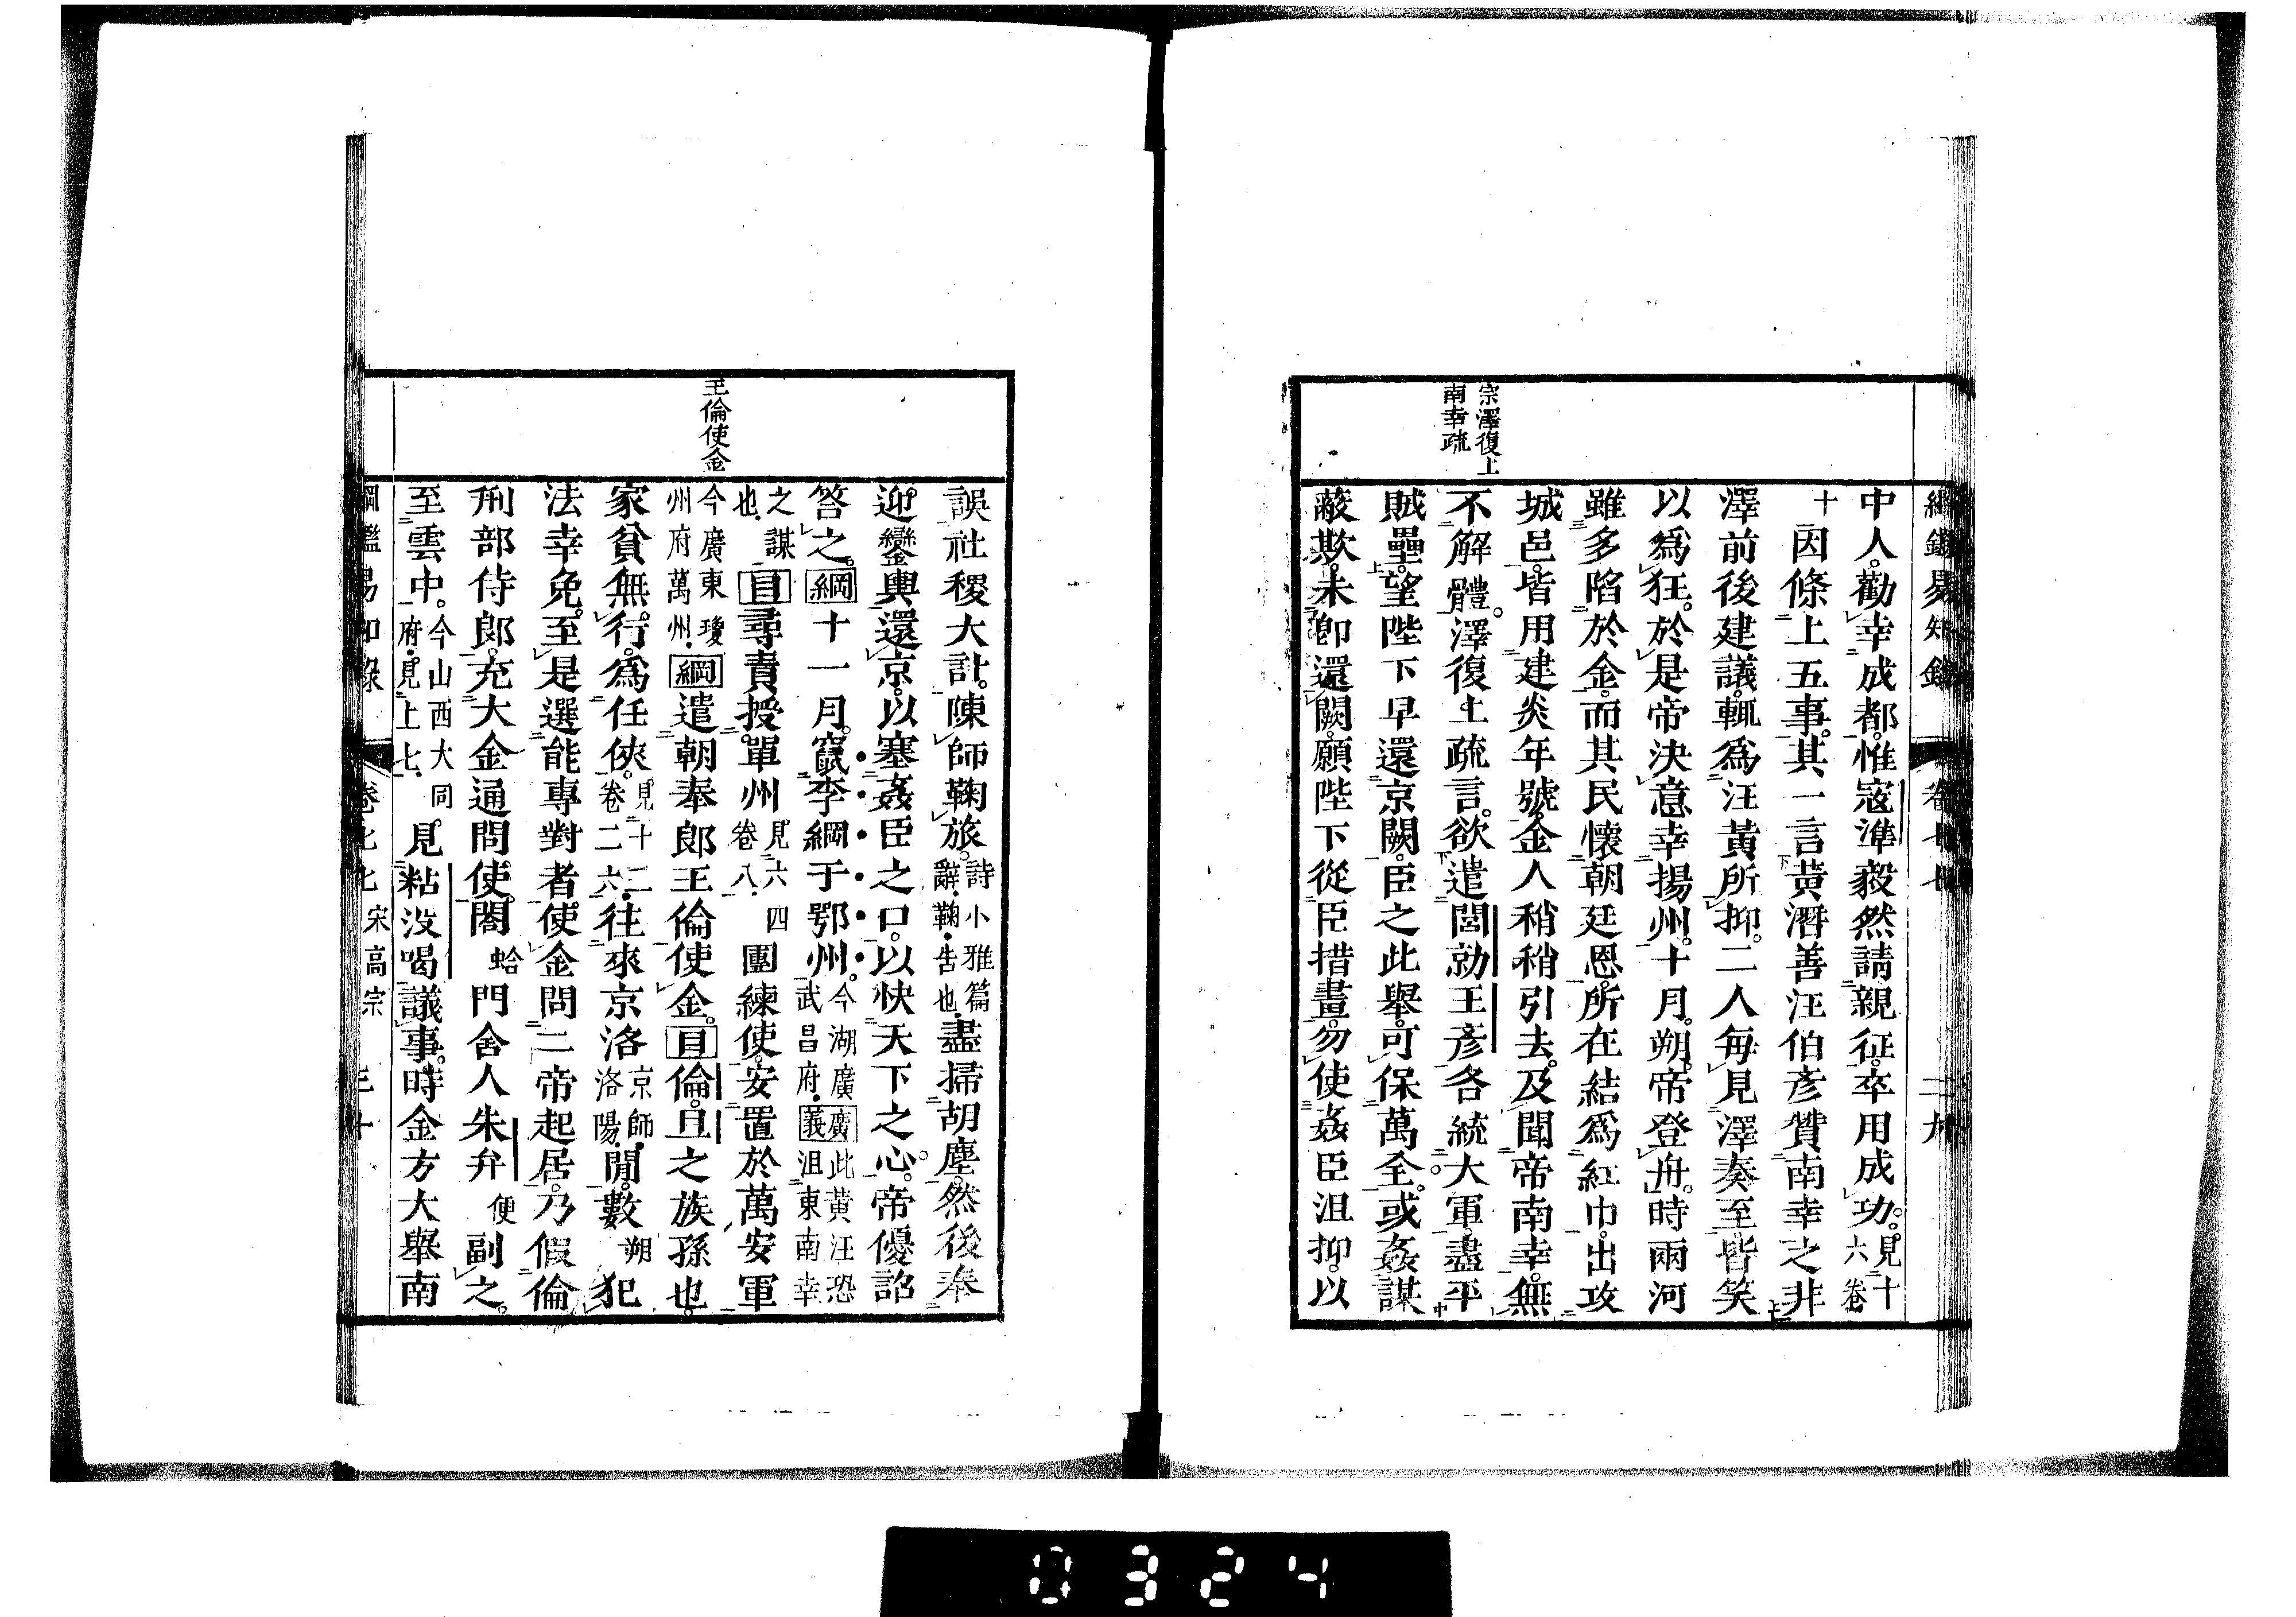 綱鑑易知錄 卷七七 二九
宗澤復上
南幸疏
中人。勸幸成都。惟寇準毅然請親征。卒用成功。見十六卷
十因條上五事。其一言黃潛善汪伯彥贊南幸之非
澤前後建議。輒爲汪黃所抑。二人每見澤奏至。皆笑
以爲狂。於是帝決意幸揚州。十月。朔。帝登舟。時兩河
雖多陷於金。而其民懷朝廷恩。所在結爲紅巾。出攻
城邑。皆用建炎年號。金人稍稍引去。及聞帝南幸。無
不解體。澤復上疏言。欲遣閭勍王彥各統大軍。盡平
賊壘。望陛下早還京闕。臣之此舉。可保萬全。或姦謀
蔽欺。未卽還闕。願陛下從臣措畫。勿使姦臣沮抑。以
王倫使金
誤社稷大計。陳師鞠旅。詩小雅篇辭。鞠。告也。盡掃胡塵。然後奉
迎鑾輿還京。以塞姦臣之口。以快天下之心。帝優詔
答之。綱十一月。竄李綱于鄂州。今湖廣武昌府。廣義此黃汪恐沮東南幸
之謀也。目尋責授。單州見六四卷八。團練使。安置於萬安軍
今廣東瓊州府萬州。綱遣朝奉郎王倫使金。目倫。旦之族孫也。
家貧無行。爲任俠。見十二卷二六。往來京洛京師洛陽。閒。數朔犯
法幸免。至是選能專對者。使金問二帝起居。乃假倫
刑部侍郎。充大金通問使。閤蛤門舍人朱弁便副之。
至雲中。今山西大同府。見上七。見粘沒喝議事。時金方大舉南
綱鑑易知錄 卷七七 宋高宗 三十
0324